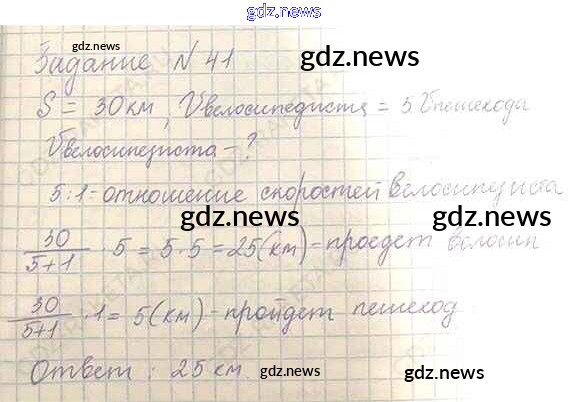 gdz.news
Задание N 41
gdz.news
gdz.news
S = 30км, Vвелосипедиста = 5 Vпешехода
Vвелосипедиста - ?
5 : 1 = отношение скоростей велосипедиста
gdz.news gdz.news
30/5+1 · 5 = 5 · 5 = 25(км) - проедет велосип
30/5+1 · 1 = 5(км) - пройдет пешеход
Ответ : 25 км.
gdz.news gdz.news